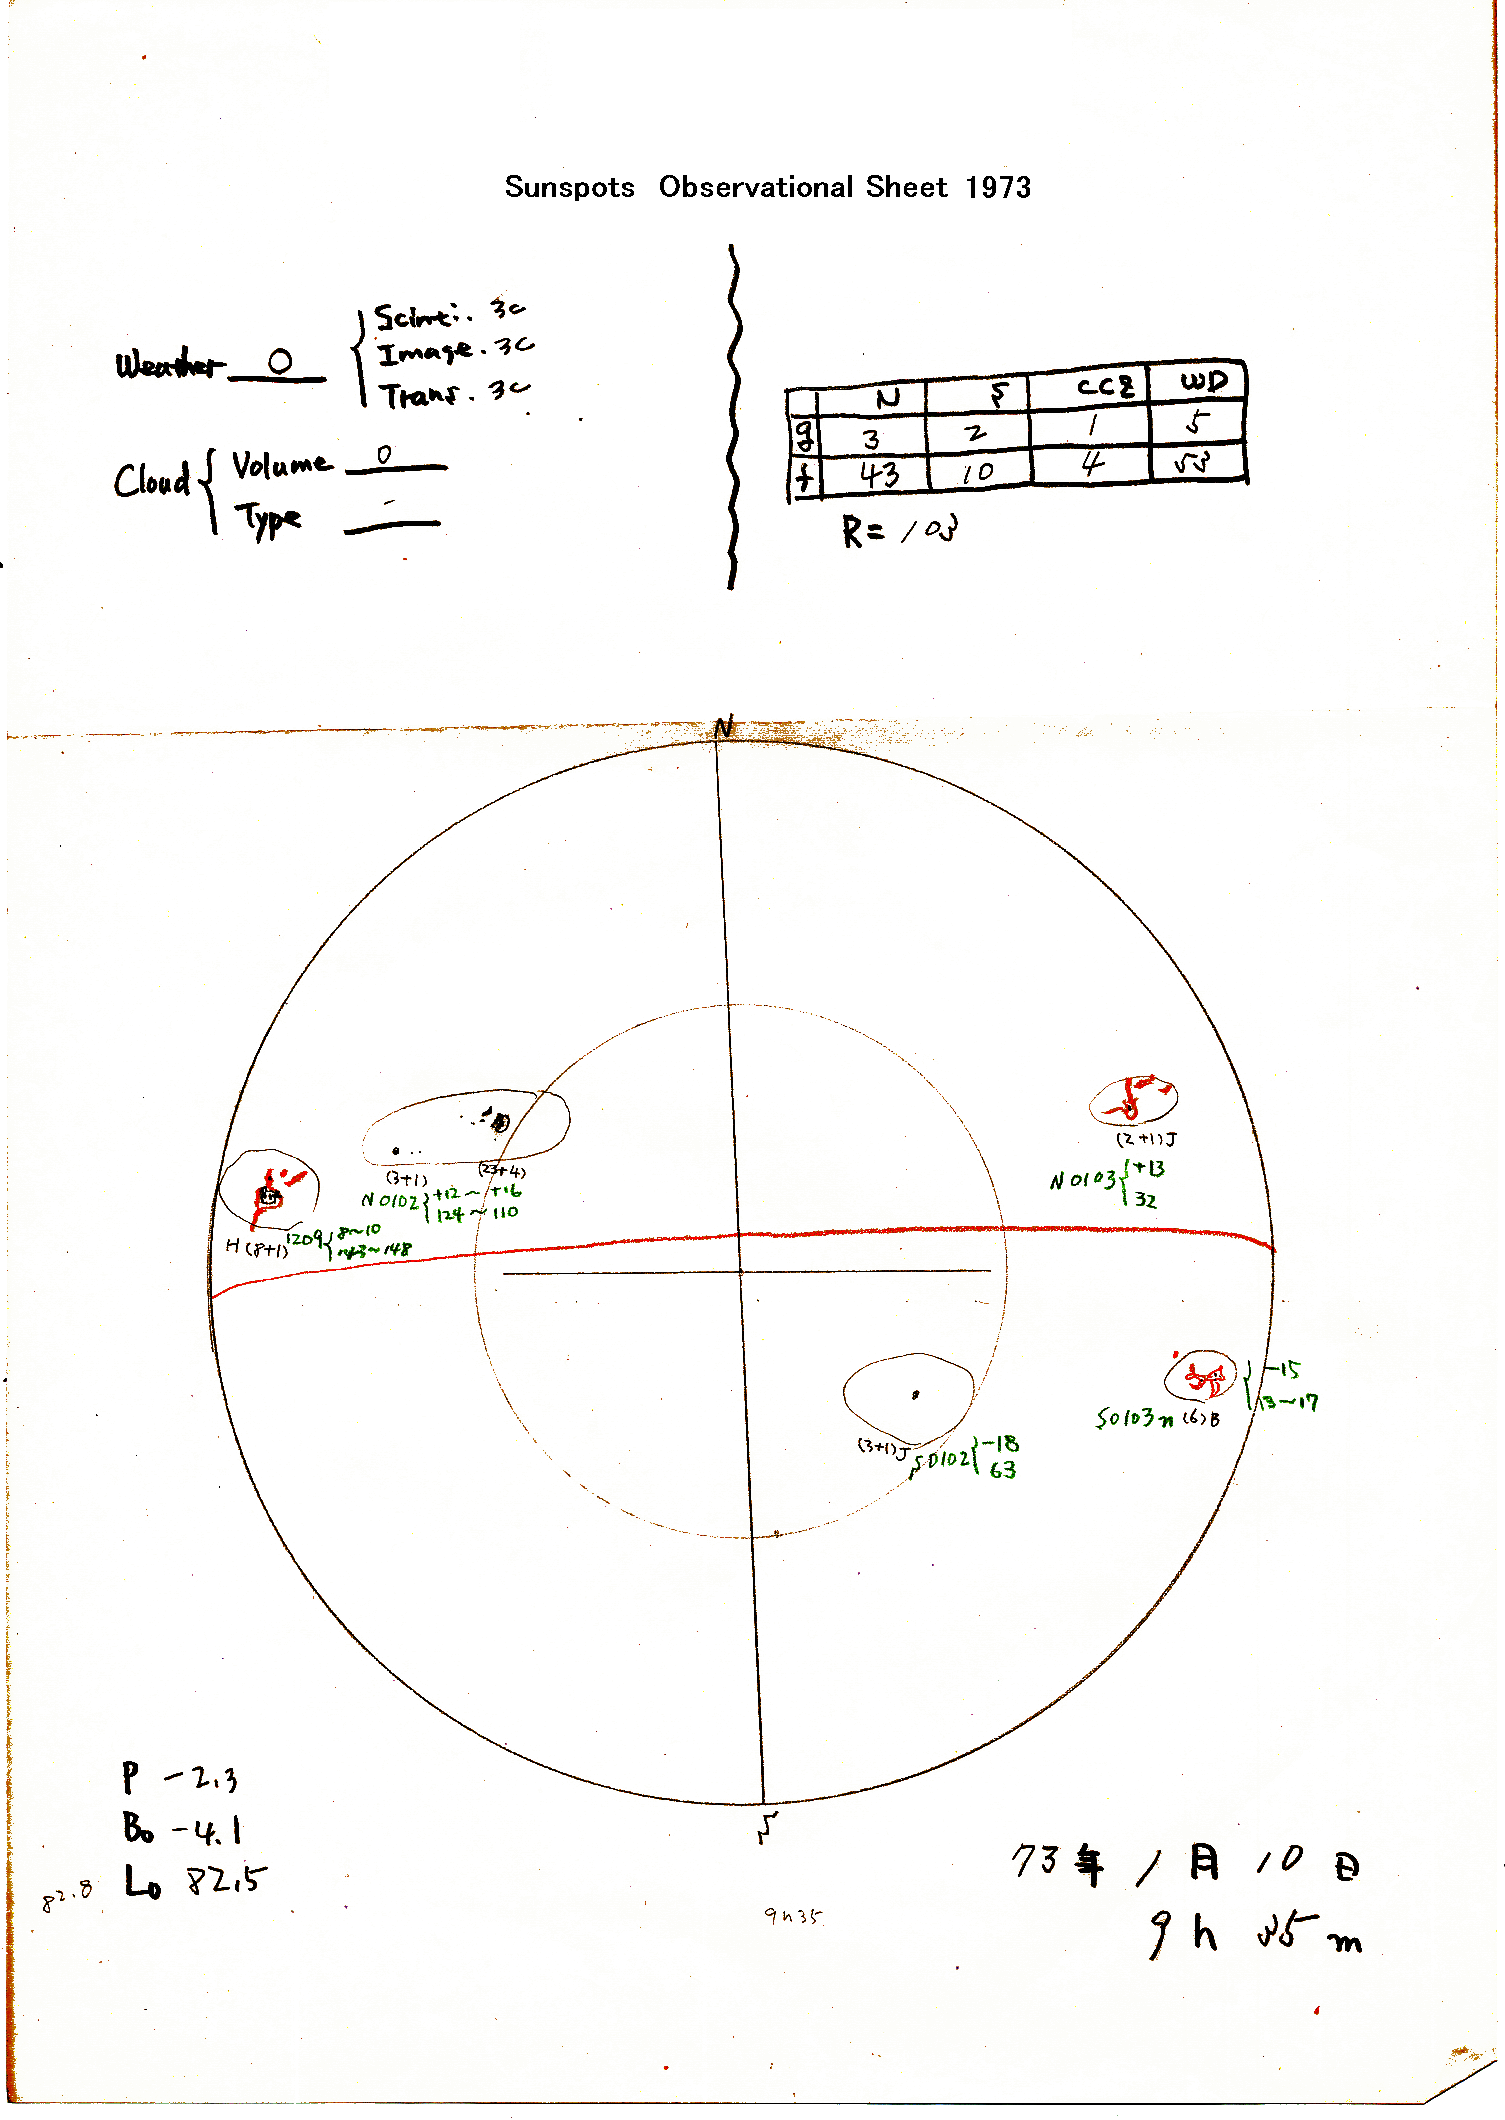 Sunspots Observational Sheet 1973
Weather O
Scinti. 3c
Image. 3c
Trans. 3c
Cloud
Volume 0
Type -
N S CCZ WD
g 3 2 1 5
f 43 10 4 53
R= 103
N
(2+1)J
N0103 +13
32
(3+1) (23+4)
N0102 +12~+16
124~110
H(8+1) 1209 8~10
143~148
-15
13~17
S0103n (6)B
(3+1)J S0102 -18
63
S
P -2.3
B0 -4.1
L0 82.5
82.8
73年 1月 10日
9h35
9h 35m